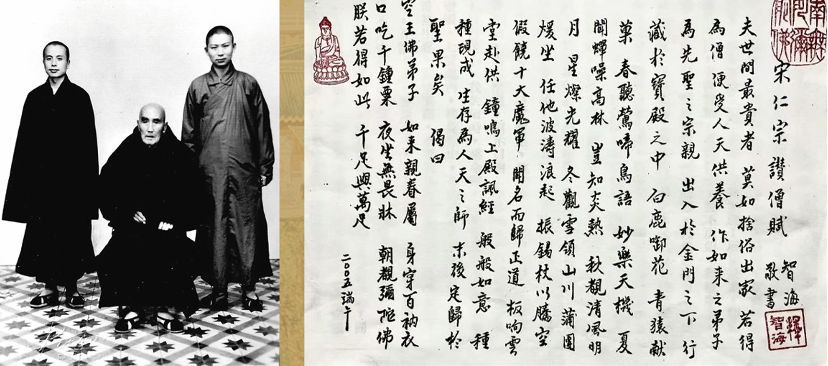 宋仁宗讚僧賦
智海
敬書
釋智海
夫世間最貴者 莫如捨俗出家 若得
為僧 便受人天供養 作如來之弟子
為先聖之宗親 出入於金門之下 行
藏於寶殿之中 白鹿啣花 青猿獻
菓 春聽鶯啼鳥語 妙樂天機 夏
聞蟬噪高林 豈知炎熱 秋觀清風明
月 星燦光耀 冬觀雪領山川 蒲團
煖坐 任他波濤浪起 振錫杖以騰空
假饒十大魔軍 聞名而歸正道 板响雲
堂赴供 鐘鳴上殿諷經 般般如意 種
種現成 生存為人天之師 末後定歸於
聖果矣 偈曰
空王佛弟子 如來親眷屬 身穿百衲衣
口吃千鍾粟 夜坐無畏牀 朝覲彌陀佛
朕若得如此 千足與萬足
二〇〇五端午